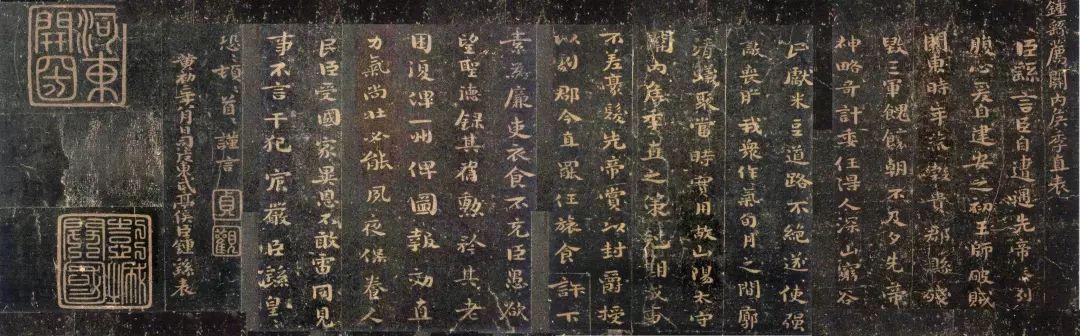 鍾繇薦關内侯季直表
臣繇言臣自遭遇先帝忝列
腹心爰自建安之初王師破賊
關東時年荒穀貴郡縣殘
毀三軍餽餉朝不及夕先帝
神略奇計委任得人深山窮谷
民獻米豆道路不絶遂使強
敵喪膽我衆作氣旬月之間廓
清蟻聚當時實用故山陽太守
關内侯季直之策尅期成事
不差豪髮先帝賞以封爵授
以劇郡今直罷任旅食許下
素為廉吏衣食不充臣愚欲
望聖德録其舊勳矜其老
困復俾一州俾圖報効直
力氣尚壯必能夙夜保養人
民臣受國家異恩不敢雷同見
事不言干犯宸嚴臣繇皇
恐頓首謹言
貞觀
黄初二年八月日司徒東武亭侯臣鍾繇表
河東